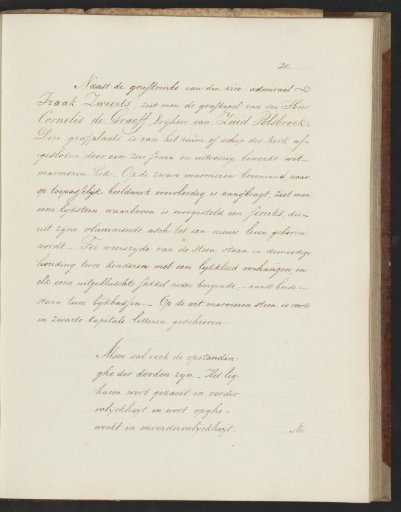 20.
Naast de graftombe van den vice-admiraal
Izaak Zweerts, ziet men de grafkapel van den Heer
Cornelis de Graeff, Vrijheer van Zuid Polsbroek.
Deze grafplaats is van het ruim of schip der kerk af-
gesloten door een zeer fraai en uitvoerig bewerkt wit
marmeren hek. Op de zware marmeren bovenrand waar
op toepasselijk beeldwerk overvloedig is aangebragt, ziet men
eene lijksteen waarboven is voorgesteld een feniks die
uit zijne vlammende asch tot een nieuw leven geboren
wordt. Ter weerszijde van de steen staan in demoedige
houding twee kinderen met een lijkkleed omhangen en
elk eene uitgebluschte fakkel neder buigende, naast beiden
staan twee lijkbussen. Op de wit marmeren steen is voorts
in zwarte kapitale letteren geschreven
Alsoo sal oock de opstandin-
ghe der dooden zyn. Het lig-
haem wort gezaeit in verder
velyckheyt en wort opghe-
weckt in onverdervelyckheyt.
No.